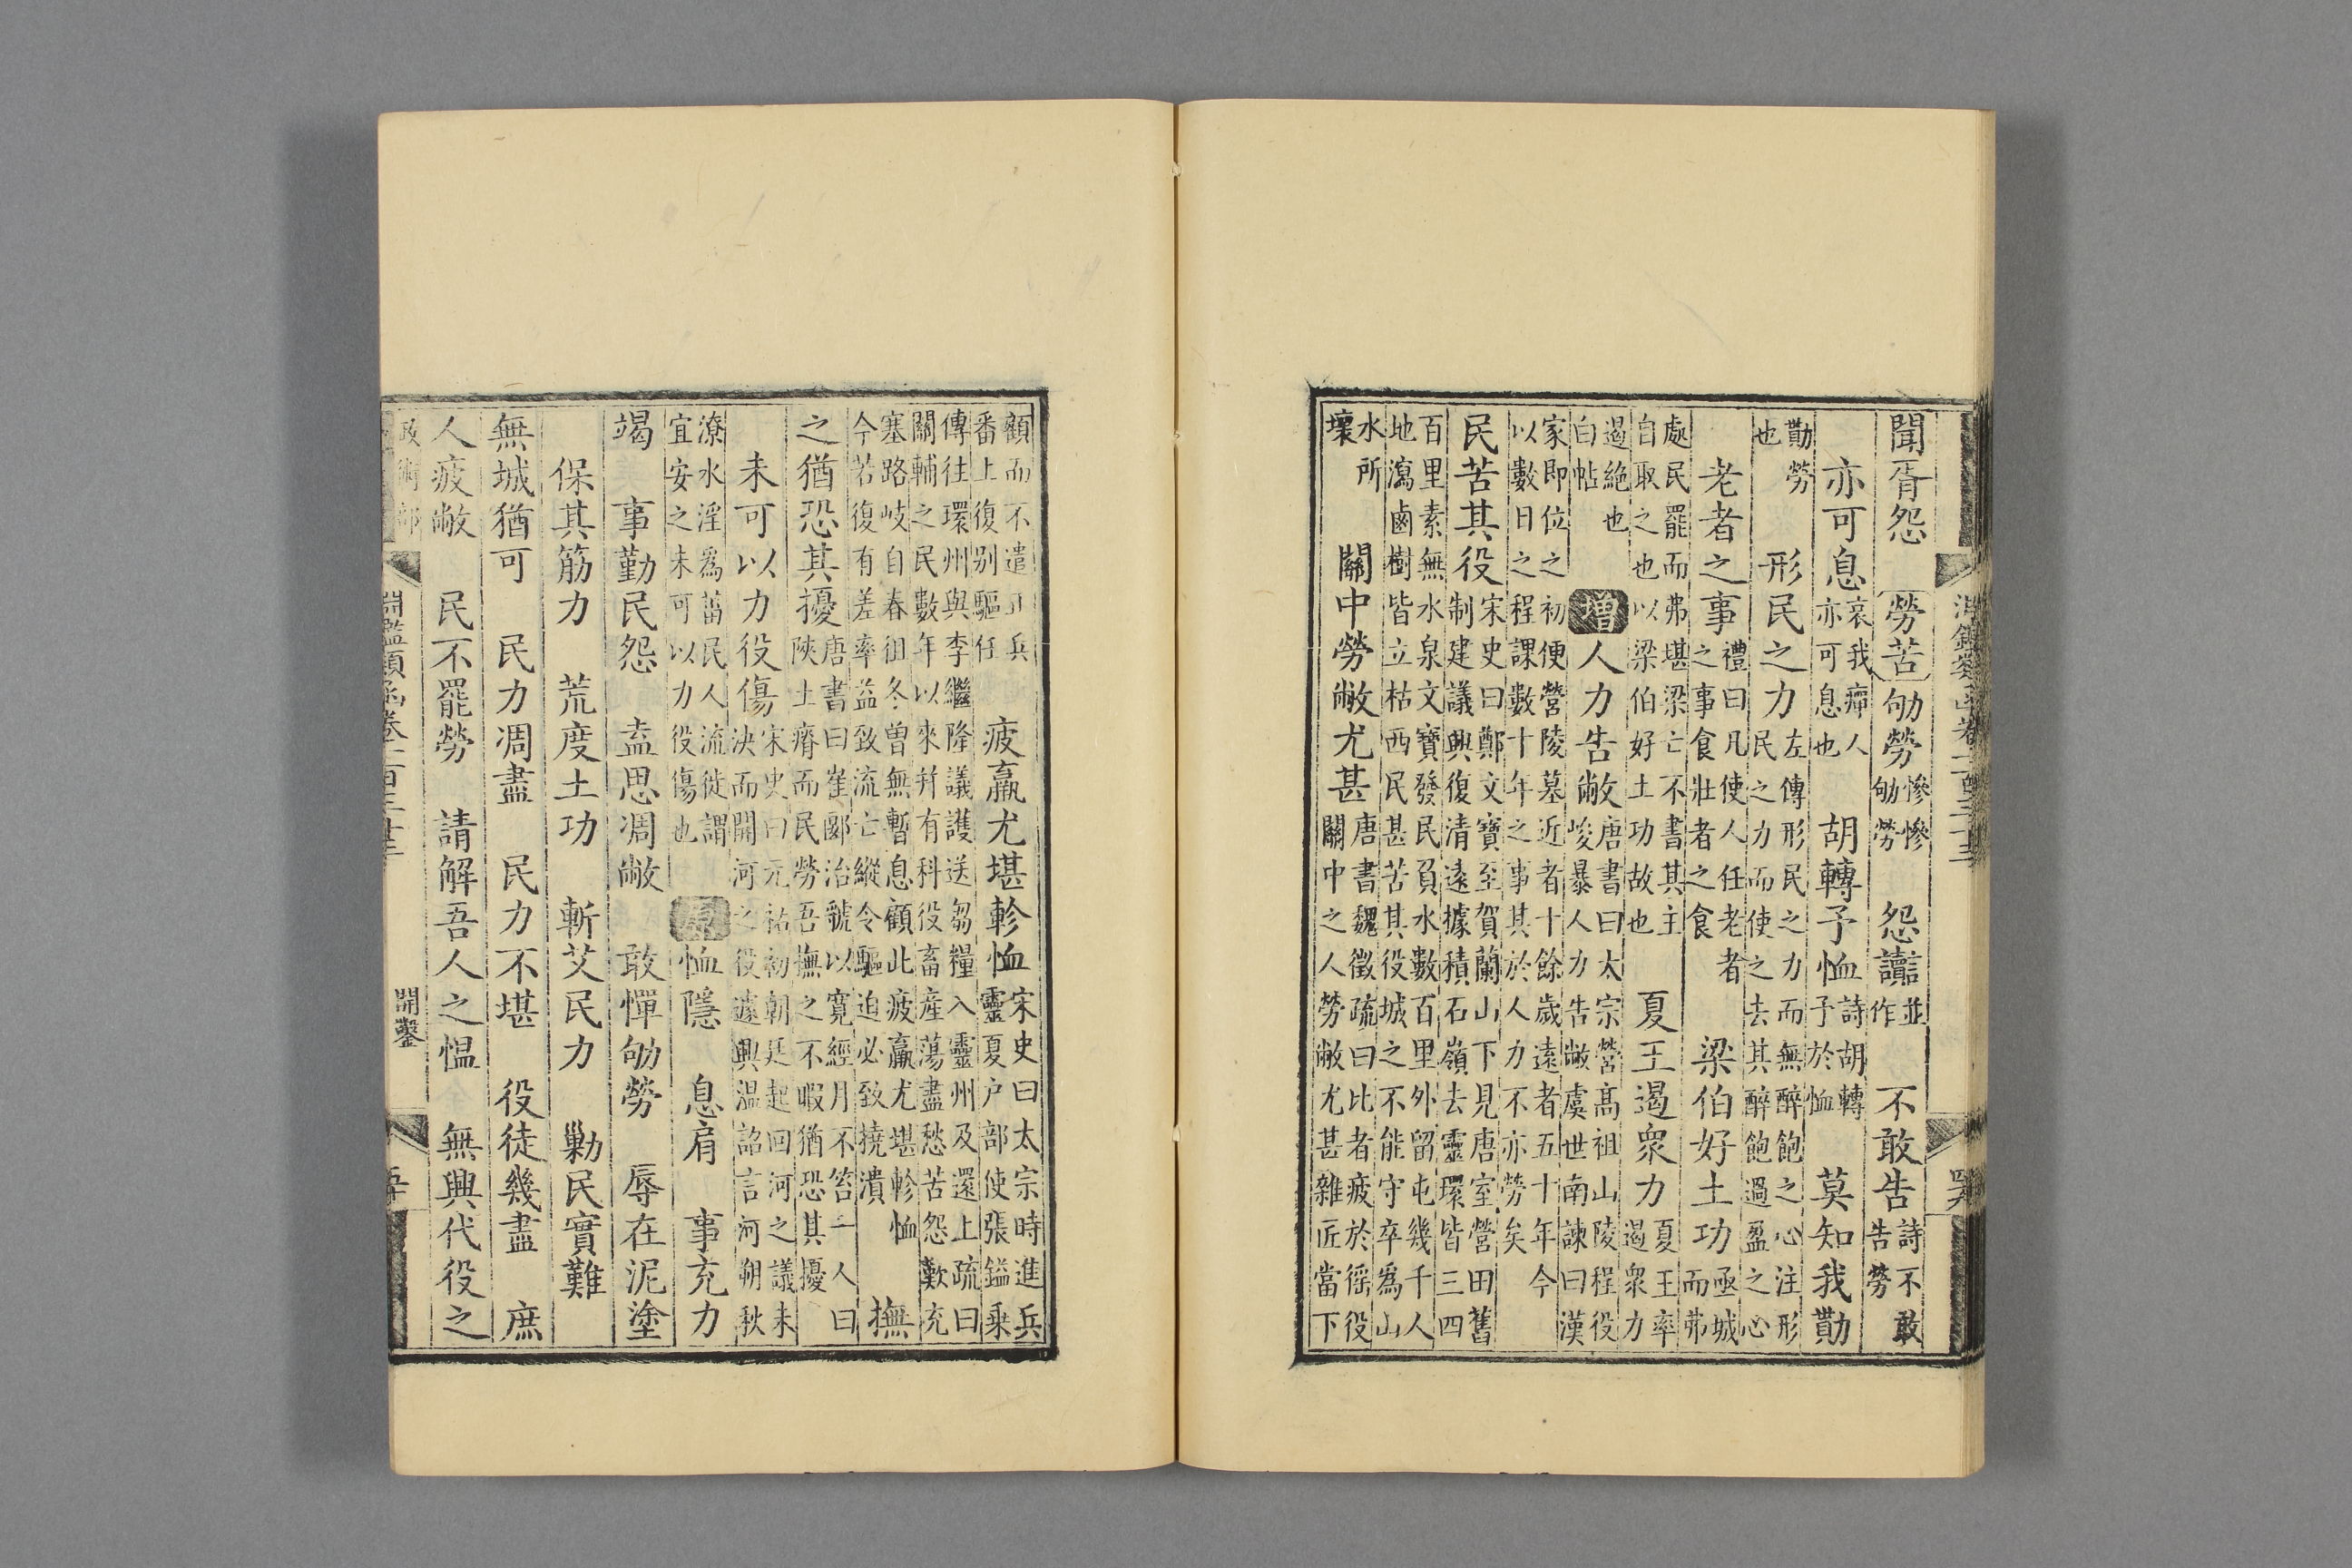 淵鑑類函卷
聞胥怨　勞苦　劬勞慘慘劬勞　怨讟並作　不敢告詩不敢告勞
亦可息哀我癉人亦可息也　胡轉予恤詩胡轉予於恤　莫知我勩
勩勞也　形民之力左傳形民之力而無醉飽之心注形民之力而使之去其醉飽過盈之心
老者之事禮曰凡使人任老者之事食壯者之食　梁伯好土功亟城而弗
處民罷而弗堪梁亡不書其主自取之也以梁伯好土功故也　夏王遏衆力夏王率遏衆力
遏絕也白帖　增　人力告敝唐書曰太宗營高祖山陵程役峻暴人力告敝虞世南諫曰漢
家即位之初便營陵墓近者十餘歲遠者五十年今以數日之程課數十年之事其於人力不亦勞矣
民苦其役宋史曰鄭文寶至賀蘭山下見唐室營田舊制建議興復清遠據積石嶺去靈環皆三四
百里素無水泉文寶發民負水數百里外留屯幾千人地瀉鹵樹皆立枯西民甚苦其役城之不能守卒爲山
水所壞　關中勞敝尤甚唐書魏徵疏曰比者疲於徭役關中之人勞敝尤甚雜匠當下
顧而不遣正兵番上復别驅任　疲羸尤堪軫恤宋史曰太宗時進兵靈夏户部使張鎰乗
傳往環州與李繼隆議護送芻糧入靈州及還上疏曰關輔之民數年以來幷有科役畜産蕩盡愁苦怨歎充
塞路岐自春徂冬曾無暫息顧此疲羸尤堪軫恤今若復有差率益致流亡縱令驅迫必致撓潰　撫
之猶恐其擾唐書曰崔郾治虢以寬經月不笞一人曰陝土瘠而民勞吾撫之不暇猶恐其擾
未可以力役傷宋史曰元祐初朝廷起回河之議未決而開河之役遽興温詔言河朔秋
潦水淫爲菑民人流徙謂宜安之未可以力役傷也　原　恤隱　息肩　事充力
竭　事勤民怨　盍思凋敝　敢憚劬勞　辱在泥塗
保其筋力　荒度土功　斬艾民力　勦民實難
無城猶可　民力凋盡　民力不堪　役徒幾盡　庶
人疲敝　民不罷勞　請解吾人之愠　無興代役之
政術部　淵鑑類函卷一百三十三　開鑿　五十